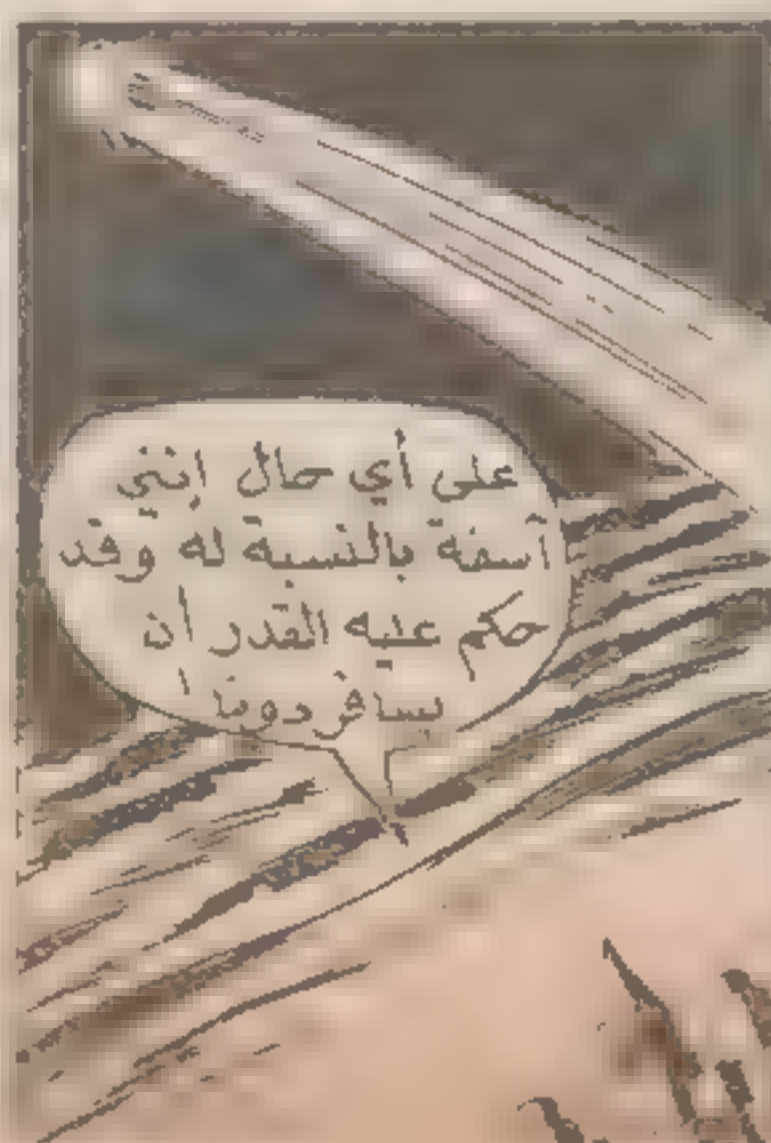 على أي حال إنني
آسفة بالنسبة له وقد
حكم عليه القدر أن
يسافر دومًا !